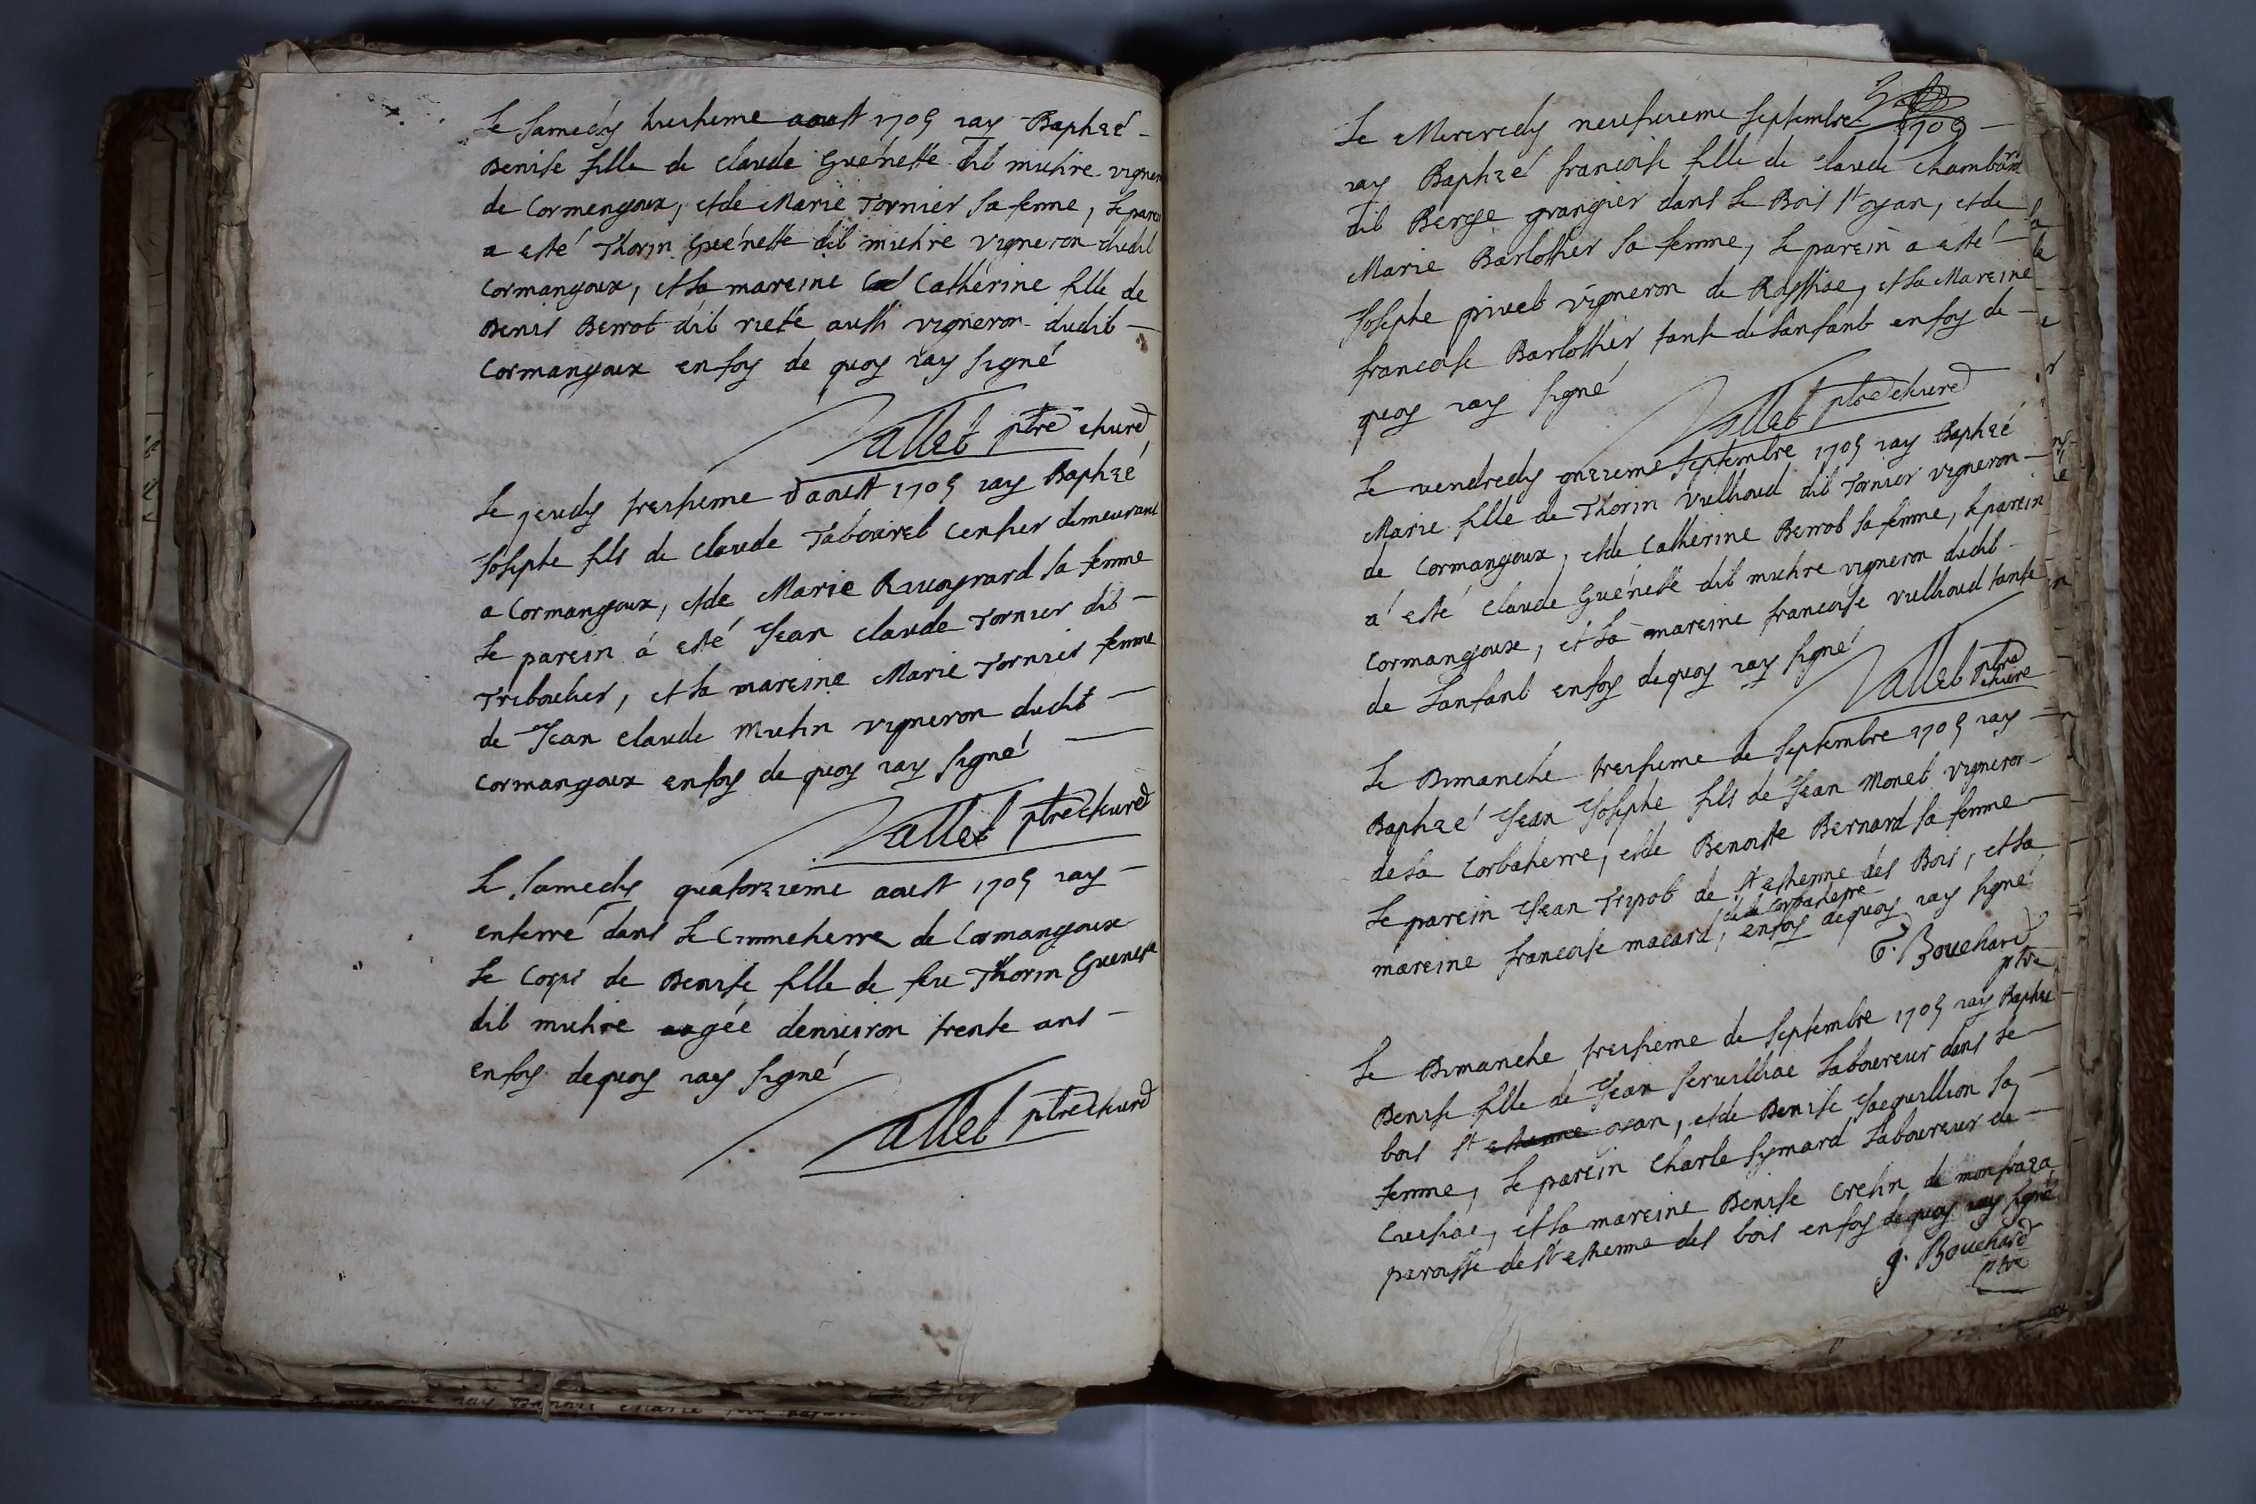 Le samedy huitieme aoust 1705 iay Baptzé
Denise fille de claude Guénette dit michre vigneron
de Cormengoux, et de Marie Tornier sa femme, le parein
a esté Thorin Guénette dit michre vigneron dudit
Cormangoux, et la mareine Catherine fille de
Denis Berrot dit riette aussi vigneron dudit
Cormangoux en foy de quoy iay signé
Vallet ptre & curé
Le jeudy treisieme d'aoust 1705 iay Baptzé
Josephe fils de claude Tabouret censier demeurant
a Cormangoux, et de Marie sa femme
Le parein à esté Jean claude Tornier dit
Triboulier, et la mareine Marie Tornier femme
de Jean claude Michin vigneron dudit
Cormangoux en foy de quoy iay signé
Vallet ptre & curé
Le samedy quatorzieme aoust 1705 iay
enterré dans le Cimmetierre de Cormangoux
Le Corps de Denise fille de feu Thorin Guenette
dit michre aagée denviron trente ans
en foy de quoy iay signé
Vallet ptre & curé
Le Mercredy neufvieme septembre 1705
iay Baptzé francoise fille de claude chambard
dit Berge grangier dans le Bois st oyan, et de
Marie Barlothier sa femme, le parein a esté
Josephe pivet vigneron de et la Mareine
francoise Barlothier tante de lanfant en foy de
quoy iay signé
Vallet ptre & curé
Le vendredy onzieme septembre 1705 iay Baptzé
Marie fille de Thorin Vulliod dit Tornier vigneron
de Cormangoux, et de Catherine Berrot sa femme, le parein
a esté claude Guénette dit michre vigneron dudit
Cormangoux, et la mareine francoise vulliod tante
de lanfant en foy de quoy iay signé
Vallet ptre
& curé
Le Dimanche treisieme de septembre 1705 iay
Baptzé Jean Josephe fils de Jean Monet vigneron
de la Corbatierre, et de Benoiste Bernard sa femme
Le parein Jean Tripot de st estienne des Bois, et la
de la Corbatierre
mareine francoise macard, en foy de quoy iay signé
Bouchard
ptre
Le Dimanche treisieme de septembre 1705 iay Baptzé
Denise fille de Jean servilliae laboureur dans le
bois st estienne oyan, et de Denise Jacquillion sa
femme, le parein Charle symard laboureur de
Cuisiae, et la mareine Denise Cretin de
paroisse de st estienne des bois en foy de quoy iay signé
Bouchard
ptre